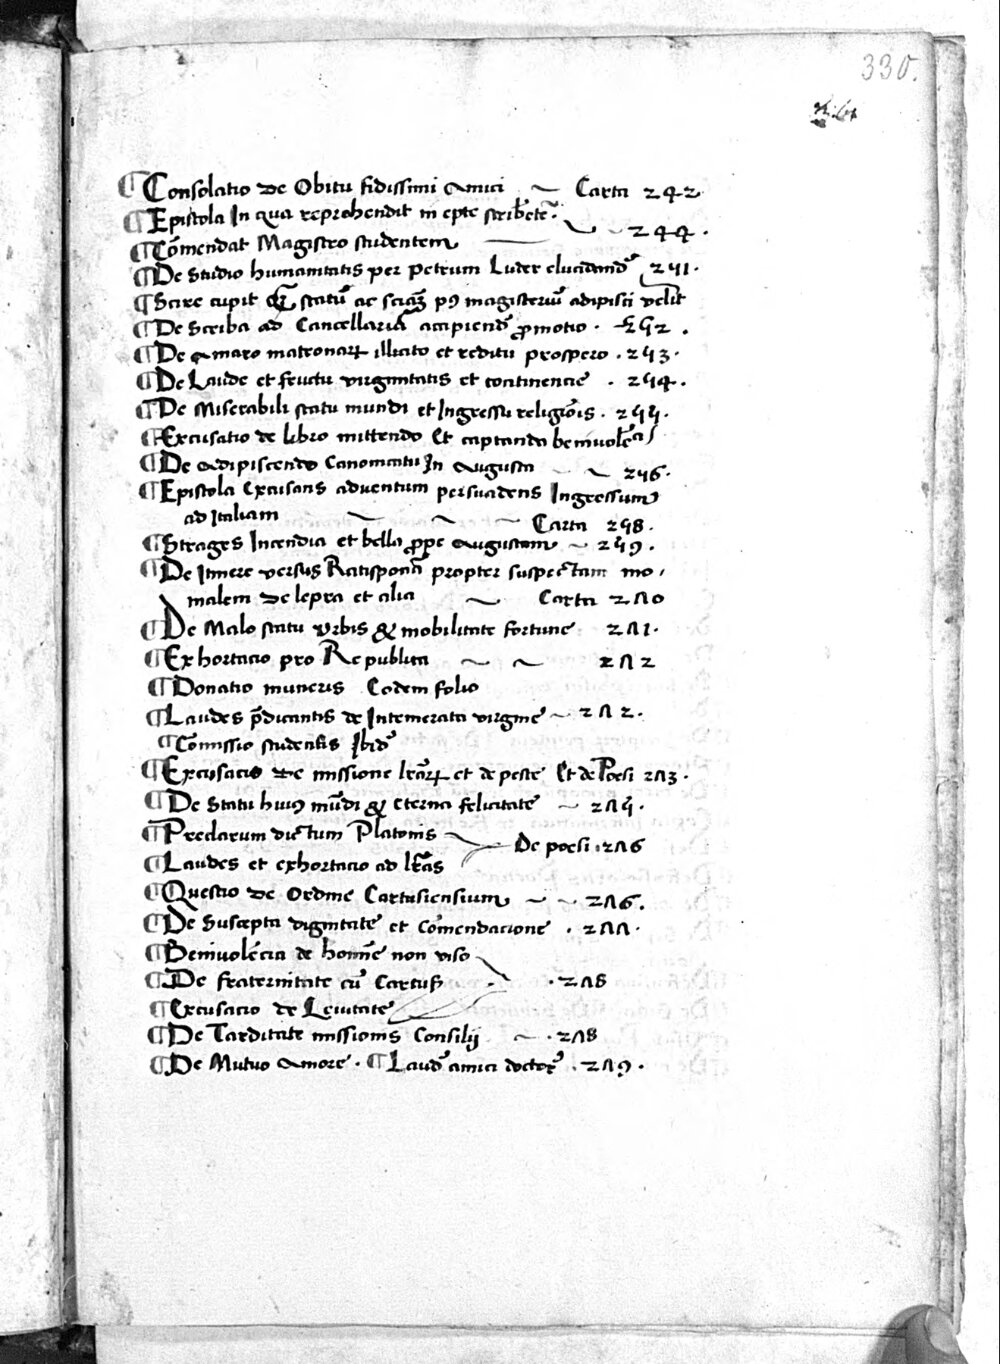 330.
¶ Consolatio de Obitu fidissimi Amici ~ Carta 242
¶ Epistola In qua reprehendit inepte scribẽtẽ. ~ 244.
¶ Cõmendat Magistro studentem
¶ De Studio humanitatis per petrum Luder elucidand̃ 251.
¶ Scire cupit statũ ac sciãȝ pꝰ magisteriũ adipisci velit
¶ De Scriba ad Cancellariã accipiend̃ p̱motio. 252.
¶ De Amaro matronaꝝ illicito et reditu prospero. 253.
¶ De Laude et fructu virginitatis et continencie. 254.
¶ De Miserabili statu mundi et Ingressu religiõis. 255.
¶ Excusatio de libro mittendo Et captanda beniuolẽcia
¶ De Adipiscendo Canonicatu In Augusta ~ 256.
¶ Epistola Excusans aduentum persuadens Ingressum
ad Italiam ~ ~ ~ Carta 258.
¶ Strages Incendia et bella p̱pe Augustam ~ 259.
¶ De Itinere versus Ratisponã propter suspectam mo-
nialem de lepra et alia ~ Carta 260
¶ De Malo statu Vrbis & mobilitate fortune 261.
¶ Exhortacio pro Republica ~ ~ 262
¶ Donatio muneris Eodem folio
¶ Laudes p̃dicantis de Intemerata virgine ~ 262.
¶ Cõmissio studentis Ibid̃
¶ Excusacio de missione lr̃aꝝ et de peste Et de Poesi 263.
¶ De Statu huiꝰ mũdi & eterna felicitate ~ 265.
¶ Preclarum dictum Platonis
De poesi. 266
¶ Laudes et exhortacio ad lr̃as
¶ Questio de Ordine Cartusiensium ~ ~ 266.
¶ De Suscepta dignitate et Cõmendacione. 266.
¶ Beniuolẽcia de homĩe non viso
¶ De fraternitate cũ Cartuß . 268
¶ Excusacio de Leuitate
¶ De Tarditate missionis Consilij ~ . 268
¶ De Mutuo Amore. ¶ Laud̃ amici doctoꝝ . 269.